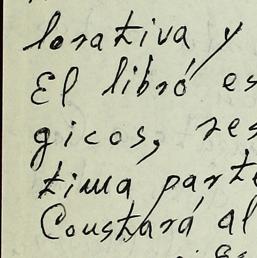 lorativa y
El libró es
gicos, res
tima parte
Constará al